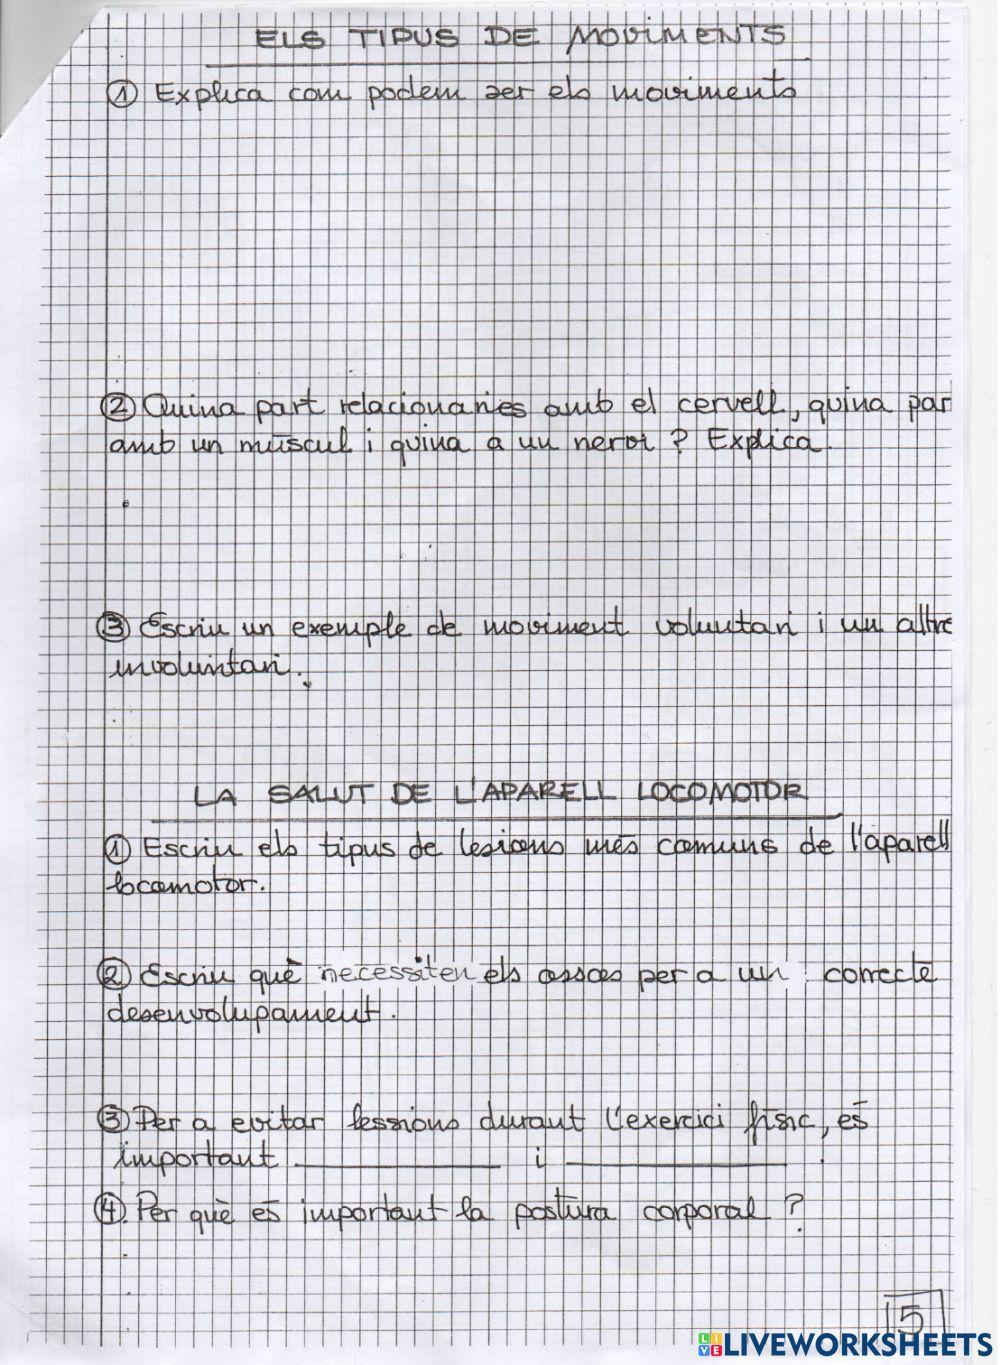 ELS TIPUS DE MOVIMENTS
① Explica com podem ser els moviments
② Quina part relacionaries amb el cervell, quina par
amb un múscul i quina a un nervi ? Explica.
③ Escriu un exemple de moviment voluntari i un altre
involuntari.
LA SALUT DE L'APARELL LOCOMOTOR
① Escriu els tipus de lesions més comuns de l'aparell
locomotor.
② Escriu què necessiten els ossos per a un correcte
desenvolupament.
③ Per a evitar lessions durant l'exercici físic, és
important ____________ i ____________ .
④. Per què és important la postura corporal ?
5
LIVEWORKSHEETS